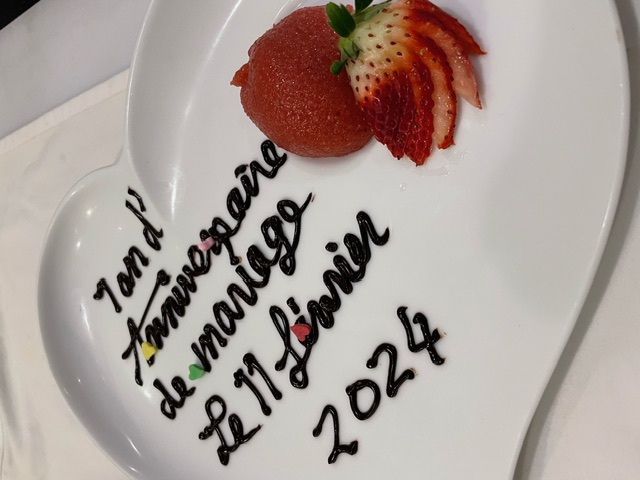 1 an d'
Anniversaire
de mariage
Le 11 février
2024